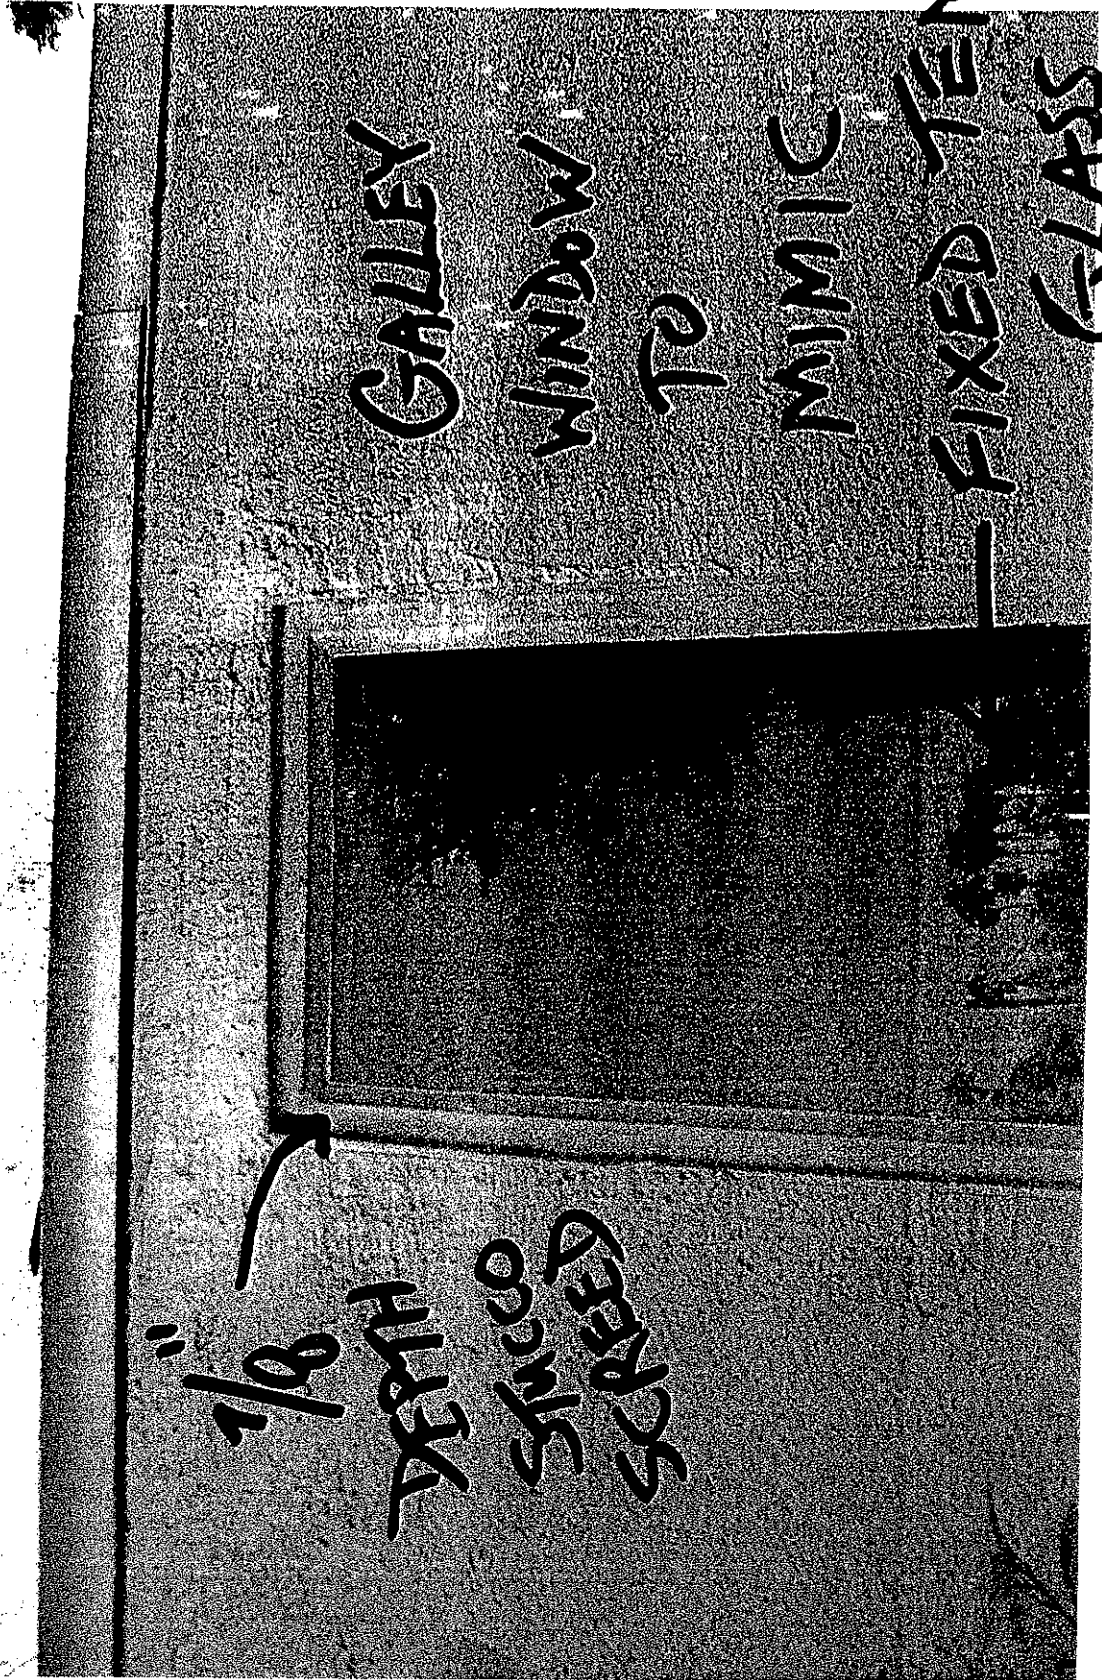 1/8"
DEPTH
STUCCO
SCREED
GALLEY
WINDOW
TO
MIMIC
FIXED
GLASS